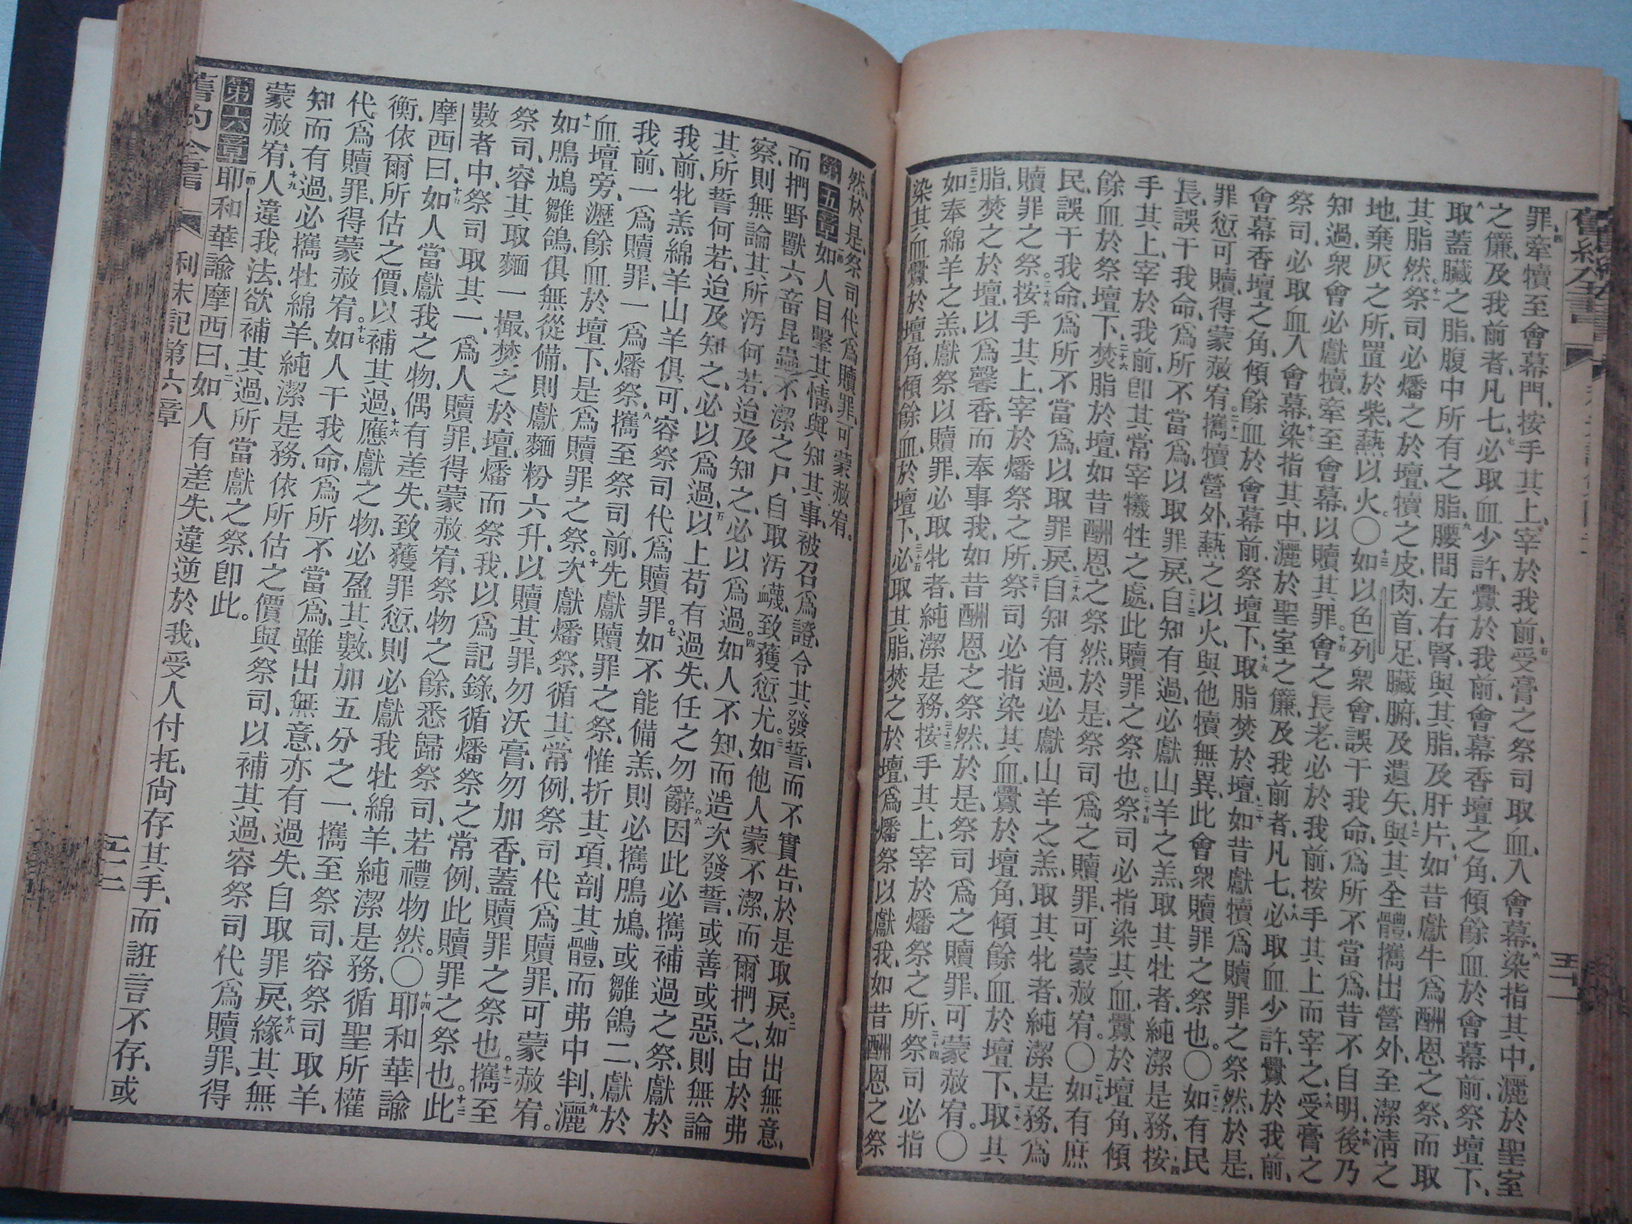 舊約全書
五十一
罪、牽犢至會幕門、按手其上、宰於我前、受膏之祭司取血、入會幕、染指其中、灑於聖室
之簾、及我前者凡七、必取血少許、釁於我前、會幕香壇之角、傾餘血於會幕前、祭壇下、
取蓋臟之脂、腹中所有之脂、腰間左右腎、與其脂、及肝片、如昔獻牛、爲酬恩之祭、而取
其脂然、祭司必燔之於壇、犢之皮肉首足臟腑及遺矢、與其全體、攜出營外、至潔淸之
地、棄灰之所、置於柴、爇以火、○如以色列衆會、誤干我命、爲所不當爲、昔不自明、後乃
知過、衆會必獻犢、牽至會幕、以贖其罪、會之長老、必於我前、按手其上而宰之、受膏之
祭司、必取血入會幕、染指其中、灑於聖室之簾、及我前者、凡七、必取血少許、釁於我前、
會幕香壇之角、傾餘血於會幕前、祭壇下、取脂焚於壇、如昔獻犢、爲贖罪之祭然、於是、
罪愆可贖、得蒙赦宥、攜犢營外、爇之以火、與他犢無異、此會衆贖罪之祭也。○如有民
長、誤干我命、爲所不當爲、以取罪戾、自知有過、必獻山羊之羔、取其牡者、純潔是務、按
手其上、宰於我前、卽其常宰犧牲之處、此贖罪之祭也。祭司必指染其血、釁於壇角、傾
餘血於祭壇下、焚脂於壇、如昔酬恩之祭然、於是祭司爲之贖罪、可蒙赦宥。○如有庶
民、誤干我命、爲所不當爲、以取罪戾、自知有過、必獻山羊之羔、取其牝者、純潔是務、爲
贖罪之祭、按手其上、宰於燔祭之所、祭司必指染其血、釁於壇角、傾餘血於壇下、取其
脂焚之於壇、以爲馨香、而奉事我、如昔酬恩之祭然、於是祭司爲之贖罪、可蒙赦宥、○
如奉綿羊之羔獻祭、以贖罪、必取牝者、純潔是務、按手其上、宰於燔祭之所、祭司必指
染其血、釁於壇角、傾餘血於壇下、必取其脂、焚之於壇、爲燔祭以獻我、如昔酬恩之祭
然、於是祭司代爲贖罪、可蒙赦宥。
第五章 如人目擊其情、與知其事、被召爲證、令其發誓、而不實告、於是取戾、如出無意、
而捫野獸六畜昆蟲不潔之尸、自取汚衊、致獲愆尤、如他人蒙不潔、而爾捫之、由於弗
察、則無論其所汚何若、迨及知之、必以爲過、如人不知而造次發誓、或善或惡、則無論
其所誓何若、迨及知之、必以爲過、以上苟有過失、任之勿辭、因此必攜補過之祭、獻於
我前、牝羔綿羊山羊俱可、容祭司代爲贖罪。如不能備羔、則必攜鳲鳩、或雛鴿二、獻於
我前、一爲贖罪、一爲燔祭、攜至祭司前、先獻贖罪之祭、惟折其項、剖其體、而弗中判、灑
血壇旁、瀝餘血於壇下、是爲贖罪之祭、次獻燔祭、循其常例、祭司代爲贖罪、可蒙赦宥。
如鳲鳩雛鴿、俱無從備、則獻麵粉六升、以贖其罪、勿沃膏、勿加香、蓋贖罪之祭也、攜至
祭司、容其取麵一撮、焚之於壇、燔而祭我、以爲記錄、循燔祭之常例、此贖罪之祭也。此
數者中、祭司取其一、爲人贖罪、得蒙赦宥、祭物之餘、悉歸祭司、若禮物然。○耶和華諭
摩西曰、如人當獻我之物、偶有差失、致獲罪愆、則必獻我牡綿羊、純潔是務、循聖所權
衡、依爾所估之價、以補其過、應獻之物、必盈其數、加五分之一、攜至祭司、容祭司取羊、
代爲贖罪、得蒙赦宥。如人干我命、爲所不當爲、雖出無意、亦有過失、自取罪戾、緣其無
知而有過、必攜牡綿羊、純潔是務、依所估之價、與祭司、以補其過、容祭司代爲贖罪、得
蒙赦宥、人違我法、欲補其過、所當獻之祭、卽此。
第六章 耶和華諭摩西曰、如人有差失、違逆於我、受人付托、尙存其手、而誑言不存、或
舊約全書
利未記第六章
五十二